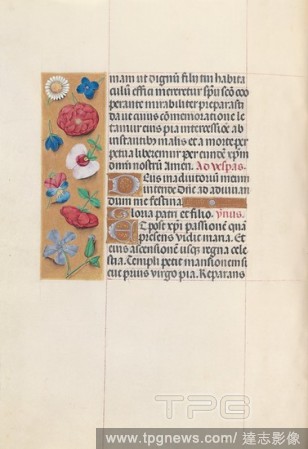 mam ut dignū filii tui habita
culū effici mereretur spū scō coo
perante mirabiliter preparasti
da ut cuius cōmemoratione le
tamur eius pia intercessiōe ab
instantibus malis et a morte per
petua liberemur per eundē xp̄m
dnm nostrum Amen. Ad vesperas.
Deus in adiutoriū meum
intende Dn̄e ad adiuuan
dum me festina.
Gloria patri et filio. ymnus.
post xp̄i passionē
presens vidit maria. Et
eius ascensionē usqȝ regna cele
stia. Templi petit mansionem si
cut prius virgo pia. Reparans
TPG
www.tpgnews.com/達志影像